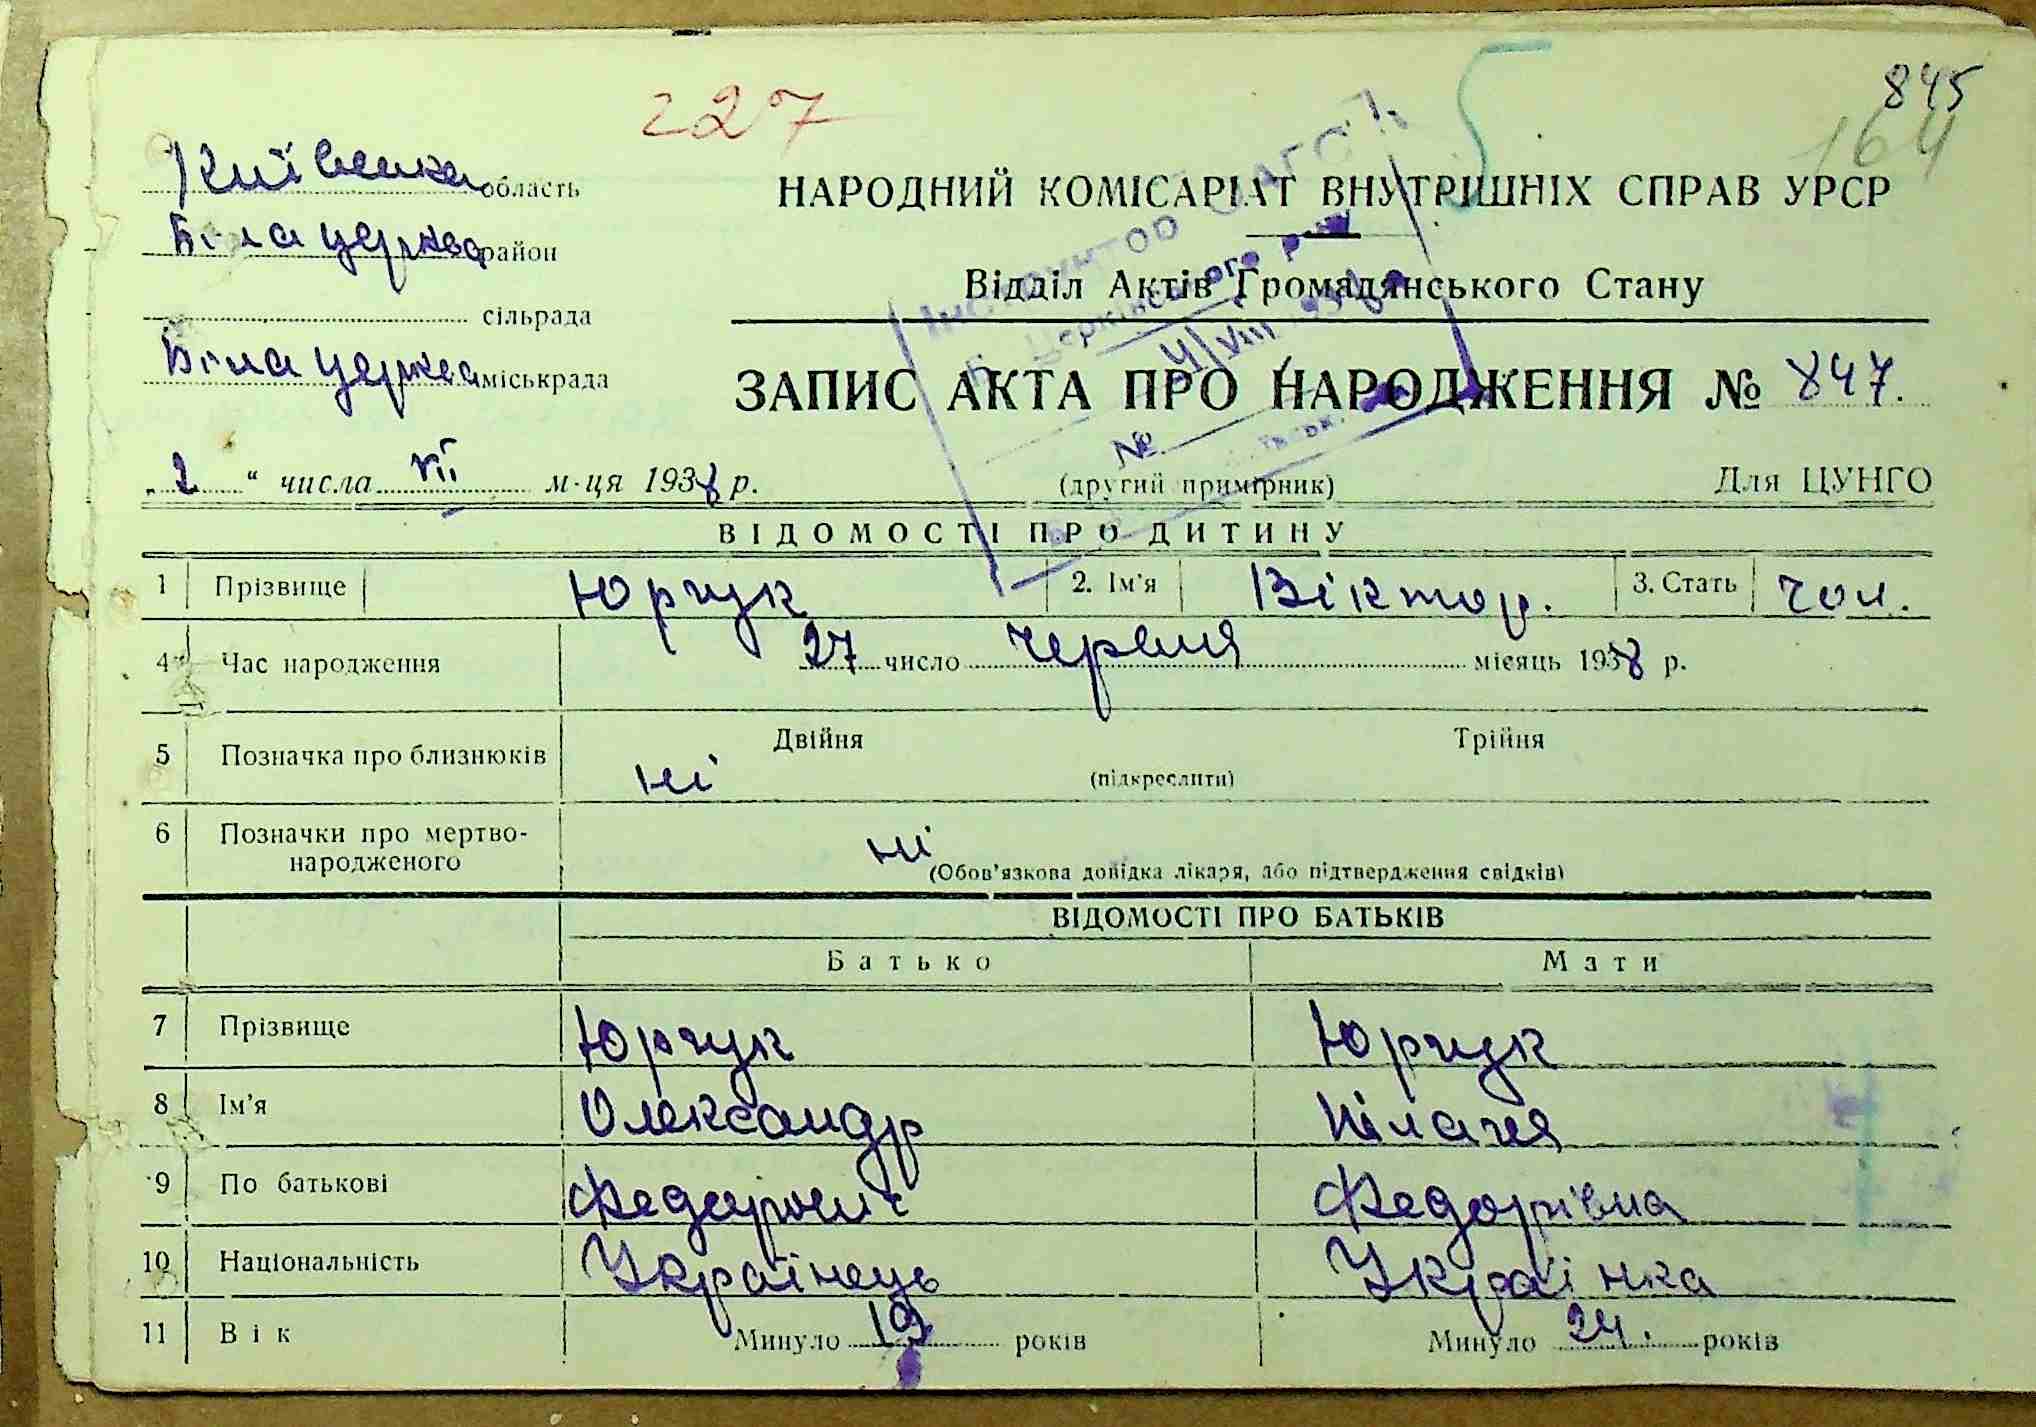 227
5
845
164
Київська область
Біла церква район
сільрада
Біла церква міськрада
НАРОДНИЙ КОМІСАРІАТ ВНУТРІШНІХ СПРАВ УРСР
Відділ Актів Громадянського Стану
ЗАПИС АКТА ПРО НАРОДЖЕННЯ № 847.
„2“ числа VII м-ця 1938 р.
(другий примірник)
Для ЦУНГО
Інструктор ЗАГС'А
VIII
№
ВІДОМОСТІ ПРО ДИТИНУ
1 Прізвище Юрчук 2. Ім'я Віктор. 3. Стать чол.
4 Час народження 27 число червня місяць 1938 р.
5 Позначка про близнюків ні Двійня Трійня
(підкреслити)
6 Позначки про мертво-
народженого ні
(Обов'язкова довідка лікаря, або підтвердження свідків)
ВІДОМОСТІ ПРО БАТЬКІВ
Батько Мати
7 Прізвище Юрчук Юрчук
8 Ім'я Олександр Пілагея
9 По батькові Федорович Федорівна
10 Національність Українець Українка
11 Вік Минуло 19 років Минуло 24. років